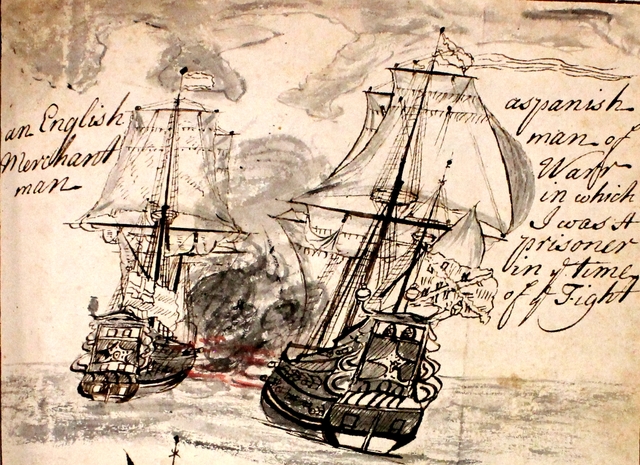 an English
Merchant
man
a spanish
man of
Warr
in which
I was a
prisoner
in ye time
of ye Fight